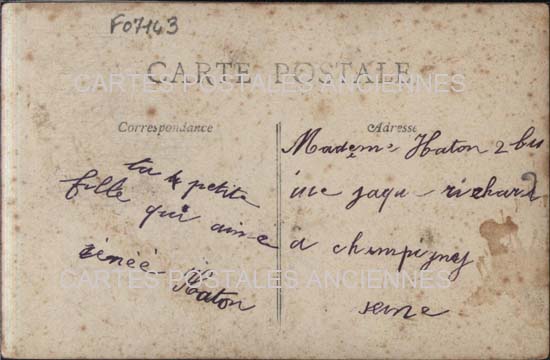 F07143
CARTE POSTALE
CARTES POSTALES ANCIENNES
Correspondance
ta petite
fille qui aime
renée Haton
Adresse
Madame Haton 2 bis
rue jaqu richard
a champigny
seine
CARTES POSTALES ANCIENNES